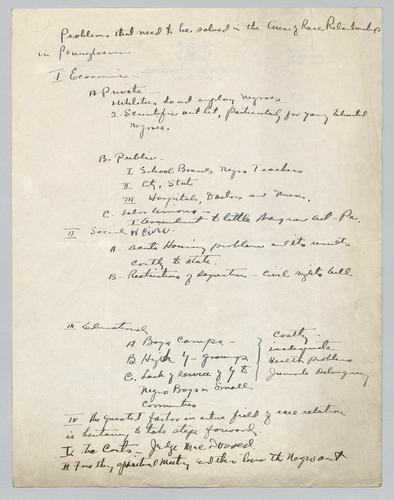 Problems that need to be solved in the Area of Race Relationship
in Pennsylvania
I Economic -
A Private -
Utilities do not employ Negroes
2- Scientific outlet, Particularly for young Educated
Negroes.
B- Public -
I School Boards Negro Teachers
II City, State
III Hospitals, Doctors and Nurses.
C. Labor Unions -
I to little Wagner Act - Pa.
II Social
A- acute Housing problem and its results
costly to state.
B- Restrictions of - Civil rights bill
III Educational
A Boys Camps -
B High Y - groups
C. Lack of service of Y to
Negro Boys in Small
Communities
Costly -
inadequate
Health problems
Juvenile Delinquency
IV The greatest factor in entire field of race relation
is hesitancy to take steps forward.
V The Courts - Judge